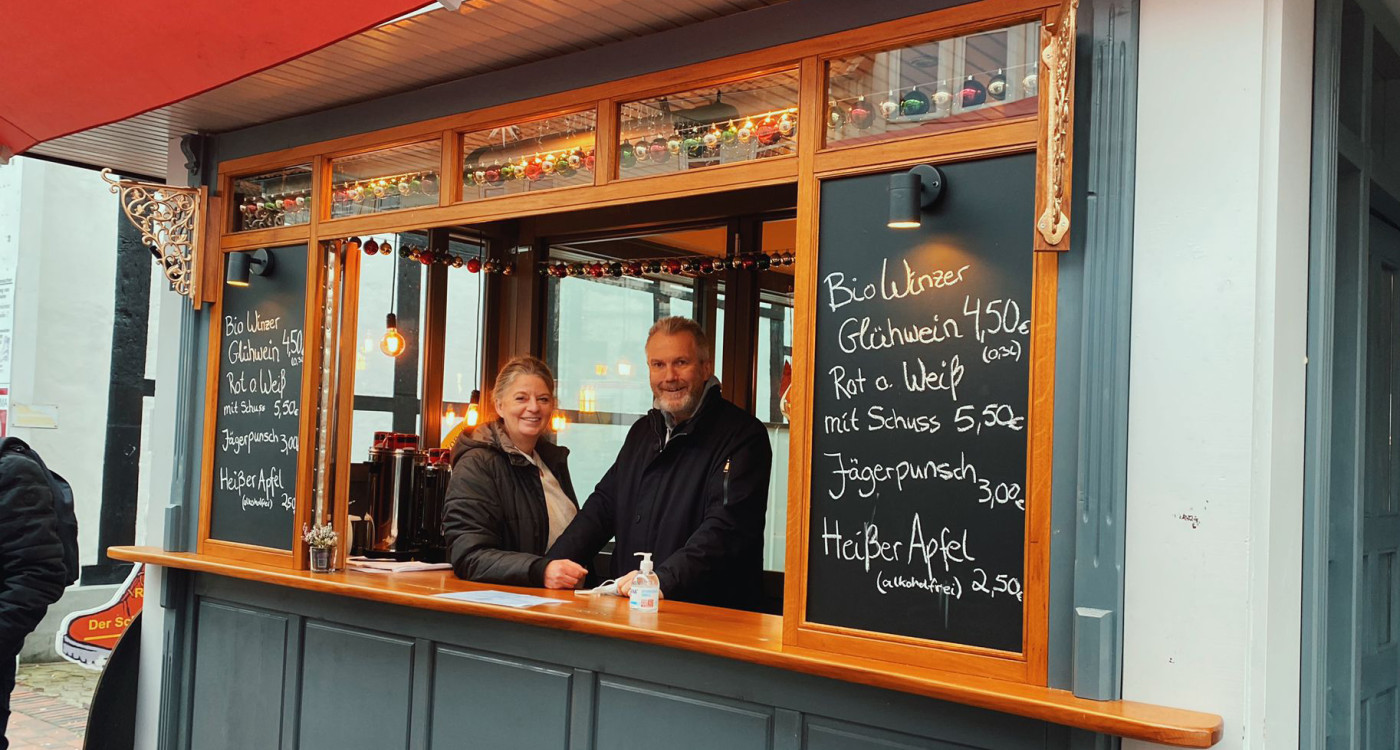 Bio Winzer
Glühwein 4,50
(0,3l)
Rot o. Weiß
mit Schuss 5,50€
Jägerpunsch 3,00€
Heißer Apfel
(alkoholfrei) 2,50
Bio Winzer
Glühwein 4,50€
(0,3l)
Rot o. Weiß
mit Schuss 5,50€
Jägerpunsch
3,00€
Heißer Apfel
(alkoholfrei) 2,50€